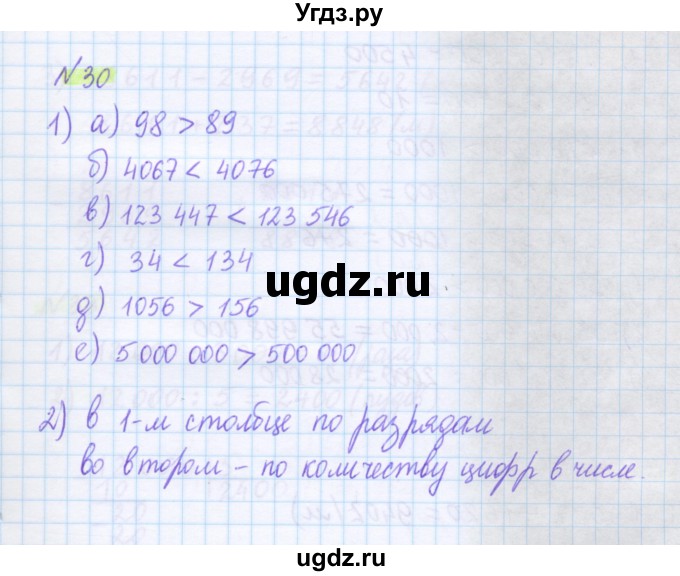 Угдз.ру
№30
1) а) 98 > 89
б) 4067 < 4076
в) 123 447 < 123 546
г) 34 < 134
ugdz.ru
д) 1056 > 156
е) 5 000 000 > 500 000
2) в 1-м столбце по разрядам
во втором – по количеству цифр в числе.
ugdz.ru